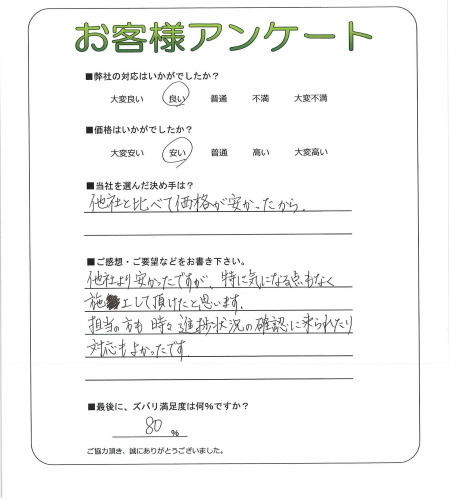 お客様アンケート
■弊社の対応はいかがでしたか?
大変良い 良い 普通 不満 大変不満
■価格はいかがでしたか?
大変安い 安い 普通 高い 大変高い
■当社を選んだ決め手は?
他社と比べて価格が安かったから.
■ご感想・ご要望などをお書き下さい。
他社より安かったですが、特に気になる点もなく
施工して頂けたと思います.
担当の方も時々進捗状況の確認に来られたり
対応もよかったです.
■最後に、ズバリ満足度は何%ですか?
80 %
ご協力頂き、誠にありがとうございました。